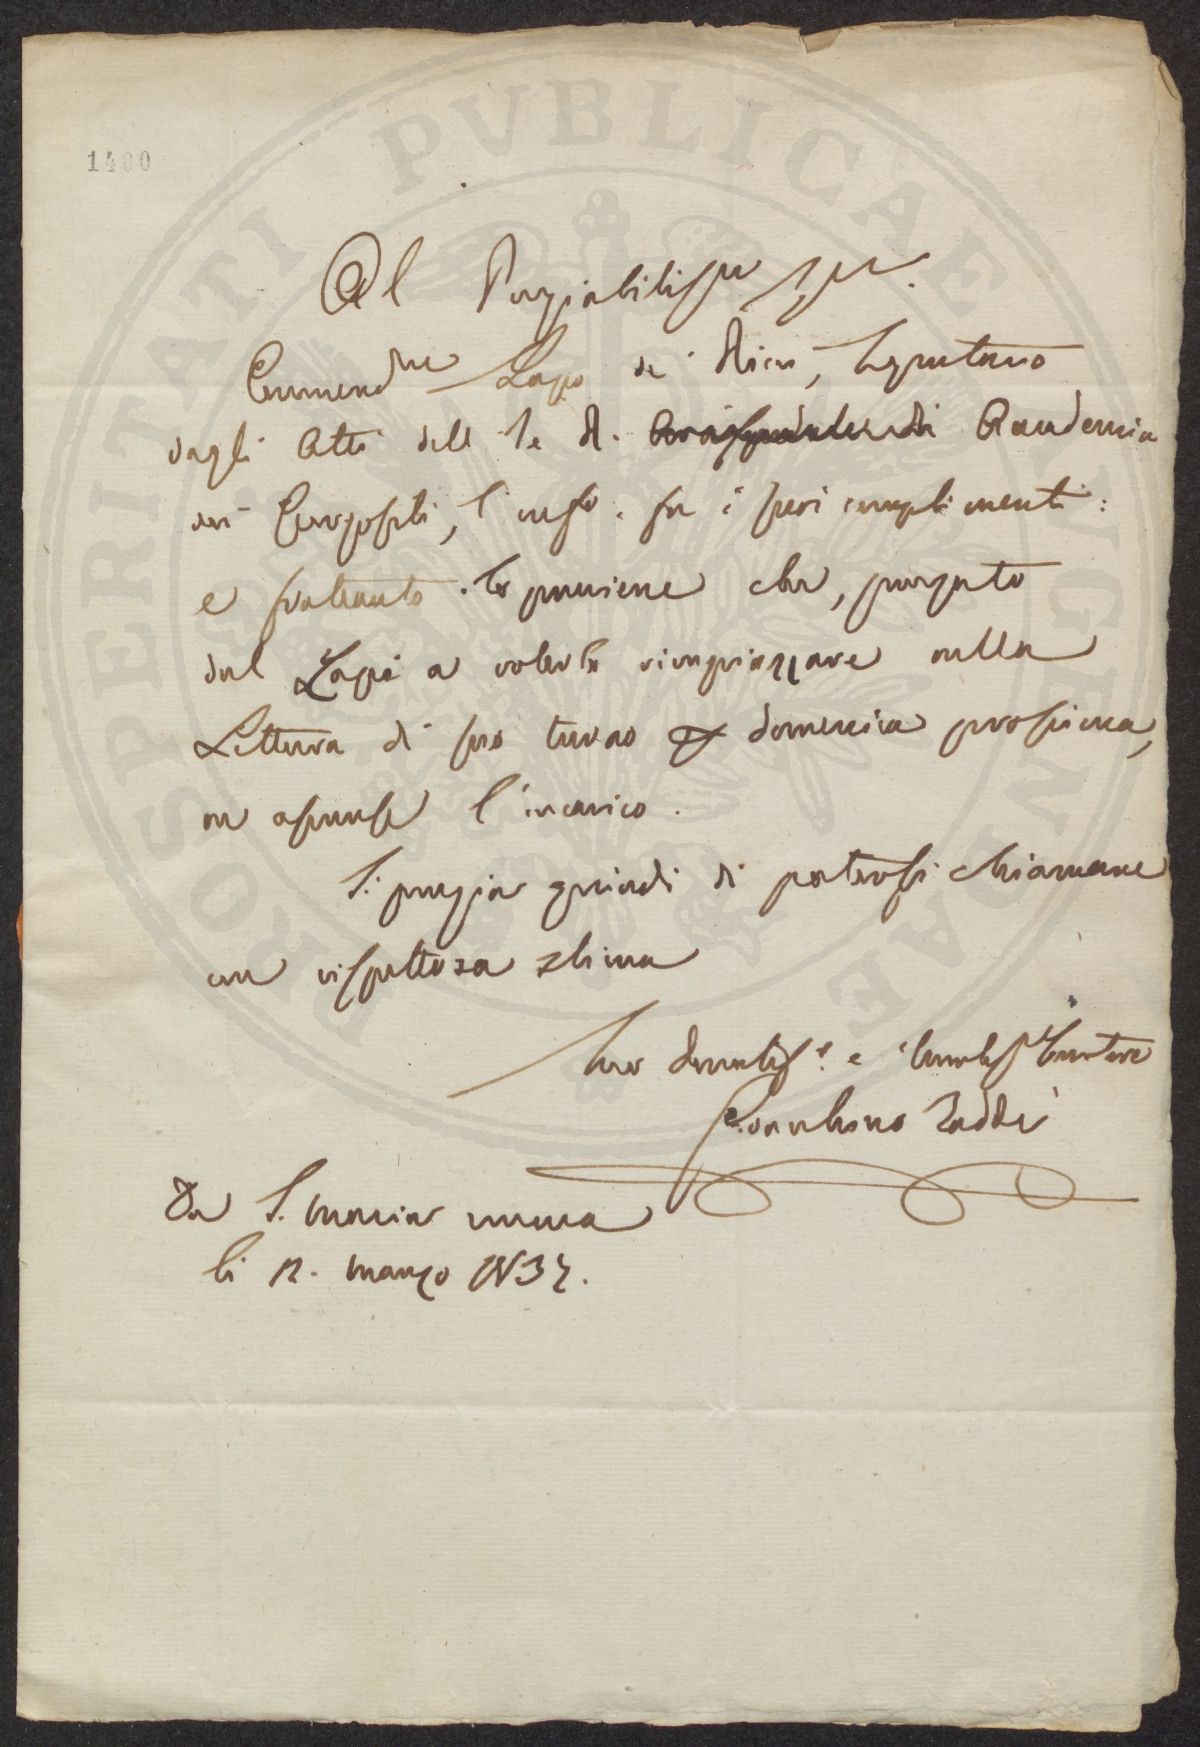 1400
PROSPERITATI PVBLICAE AVGENDAE
Al Pregiabilissmo Sigr.
Commendre Lapo de' Ricci, Segretario
degli Atti dell I e R. Accademia
dei Georgofili, l'infro. fa i suoi complimenti:
e frattanto le previene che, pregato
dal Lapi a volerlo rimpiazzare nella
Lettura di suo turno domenica prossima,
ne assunse l'incarico.
Si pregia quindi di potersi chiamare
con rispettosa stima
Suo devotiso. e
Gioacchino Taddei
Da S. Maria nuova
li 12. marzo 1837.